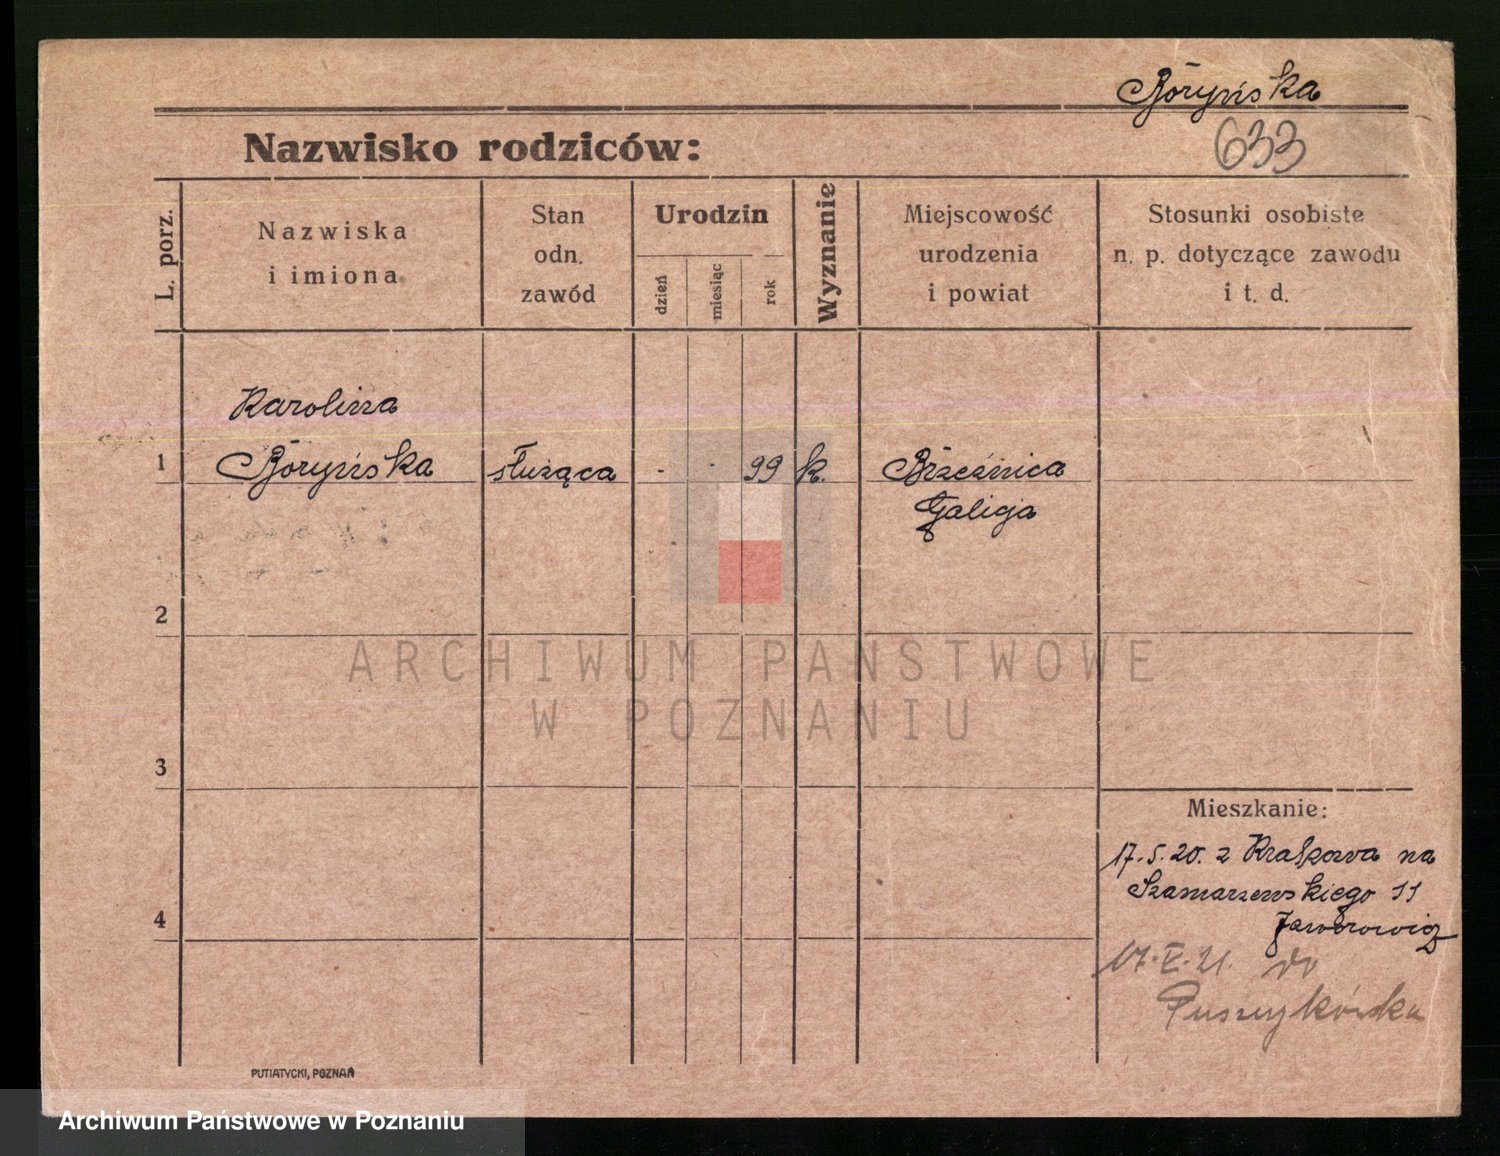 Boryńska
633
Nazwisko rodziców:
L. porz.
Nazwiska
i imiona
Stan
odn.
zawód
Urodzin
dzień
miesiąc
rok
Wyznanie
Miejscowość
urodzenia
i powiat
Stosunki osobiste
n. p. dotyczące zawodu
i t. d.
Karolina
1 Boryńska służąca - - 99 k. Brzeźnica
Galicja
2
ARCHIWUM PAŃSTWOWE
W POZNANIU
3
Mieszkanie:
17.5.20. z Krakowa na
Szamarzewskiego 11
4
Jaworowicz
17.X.21. do
Puszczykówka
PUTIATYCKI, POZNAŃ
Archiwum Państwowe w Poznaniu